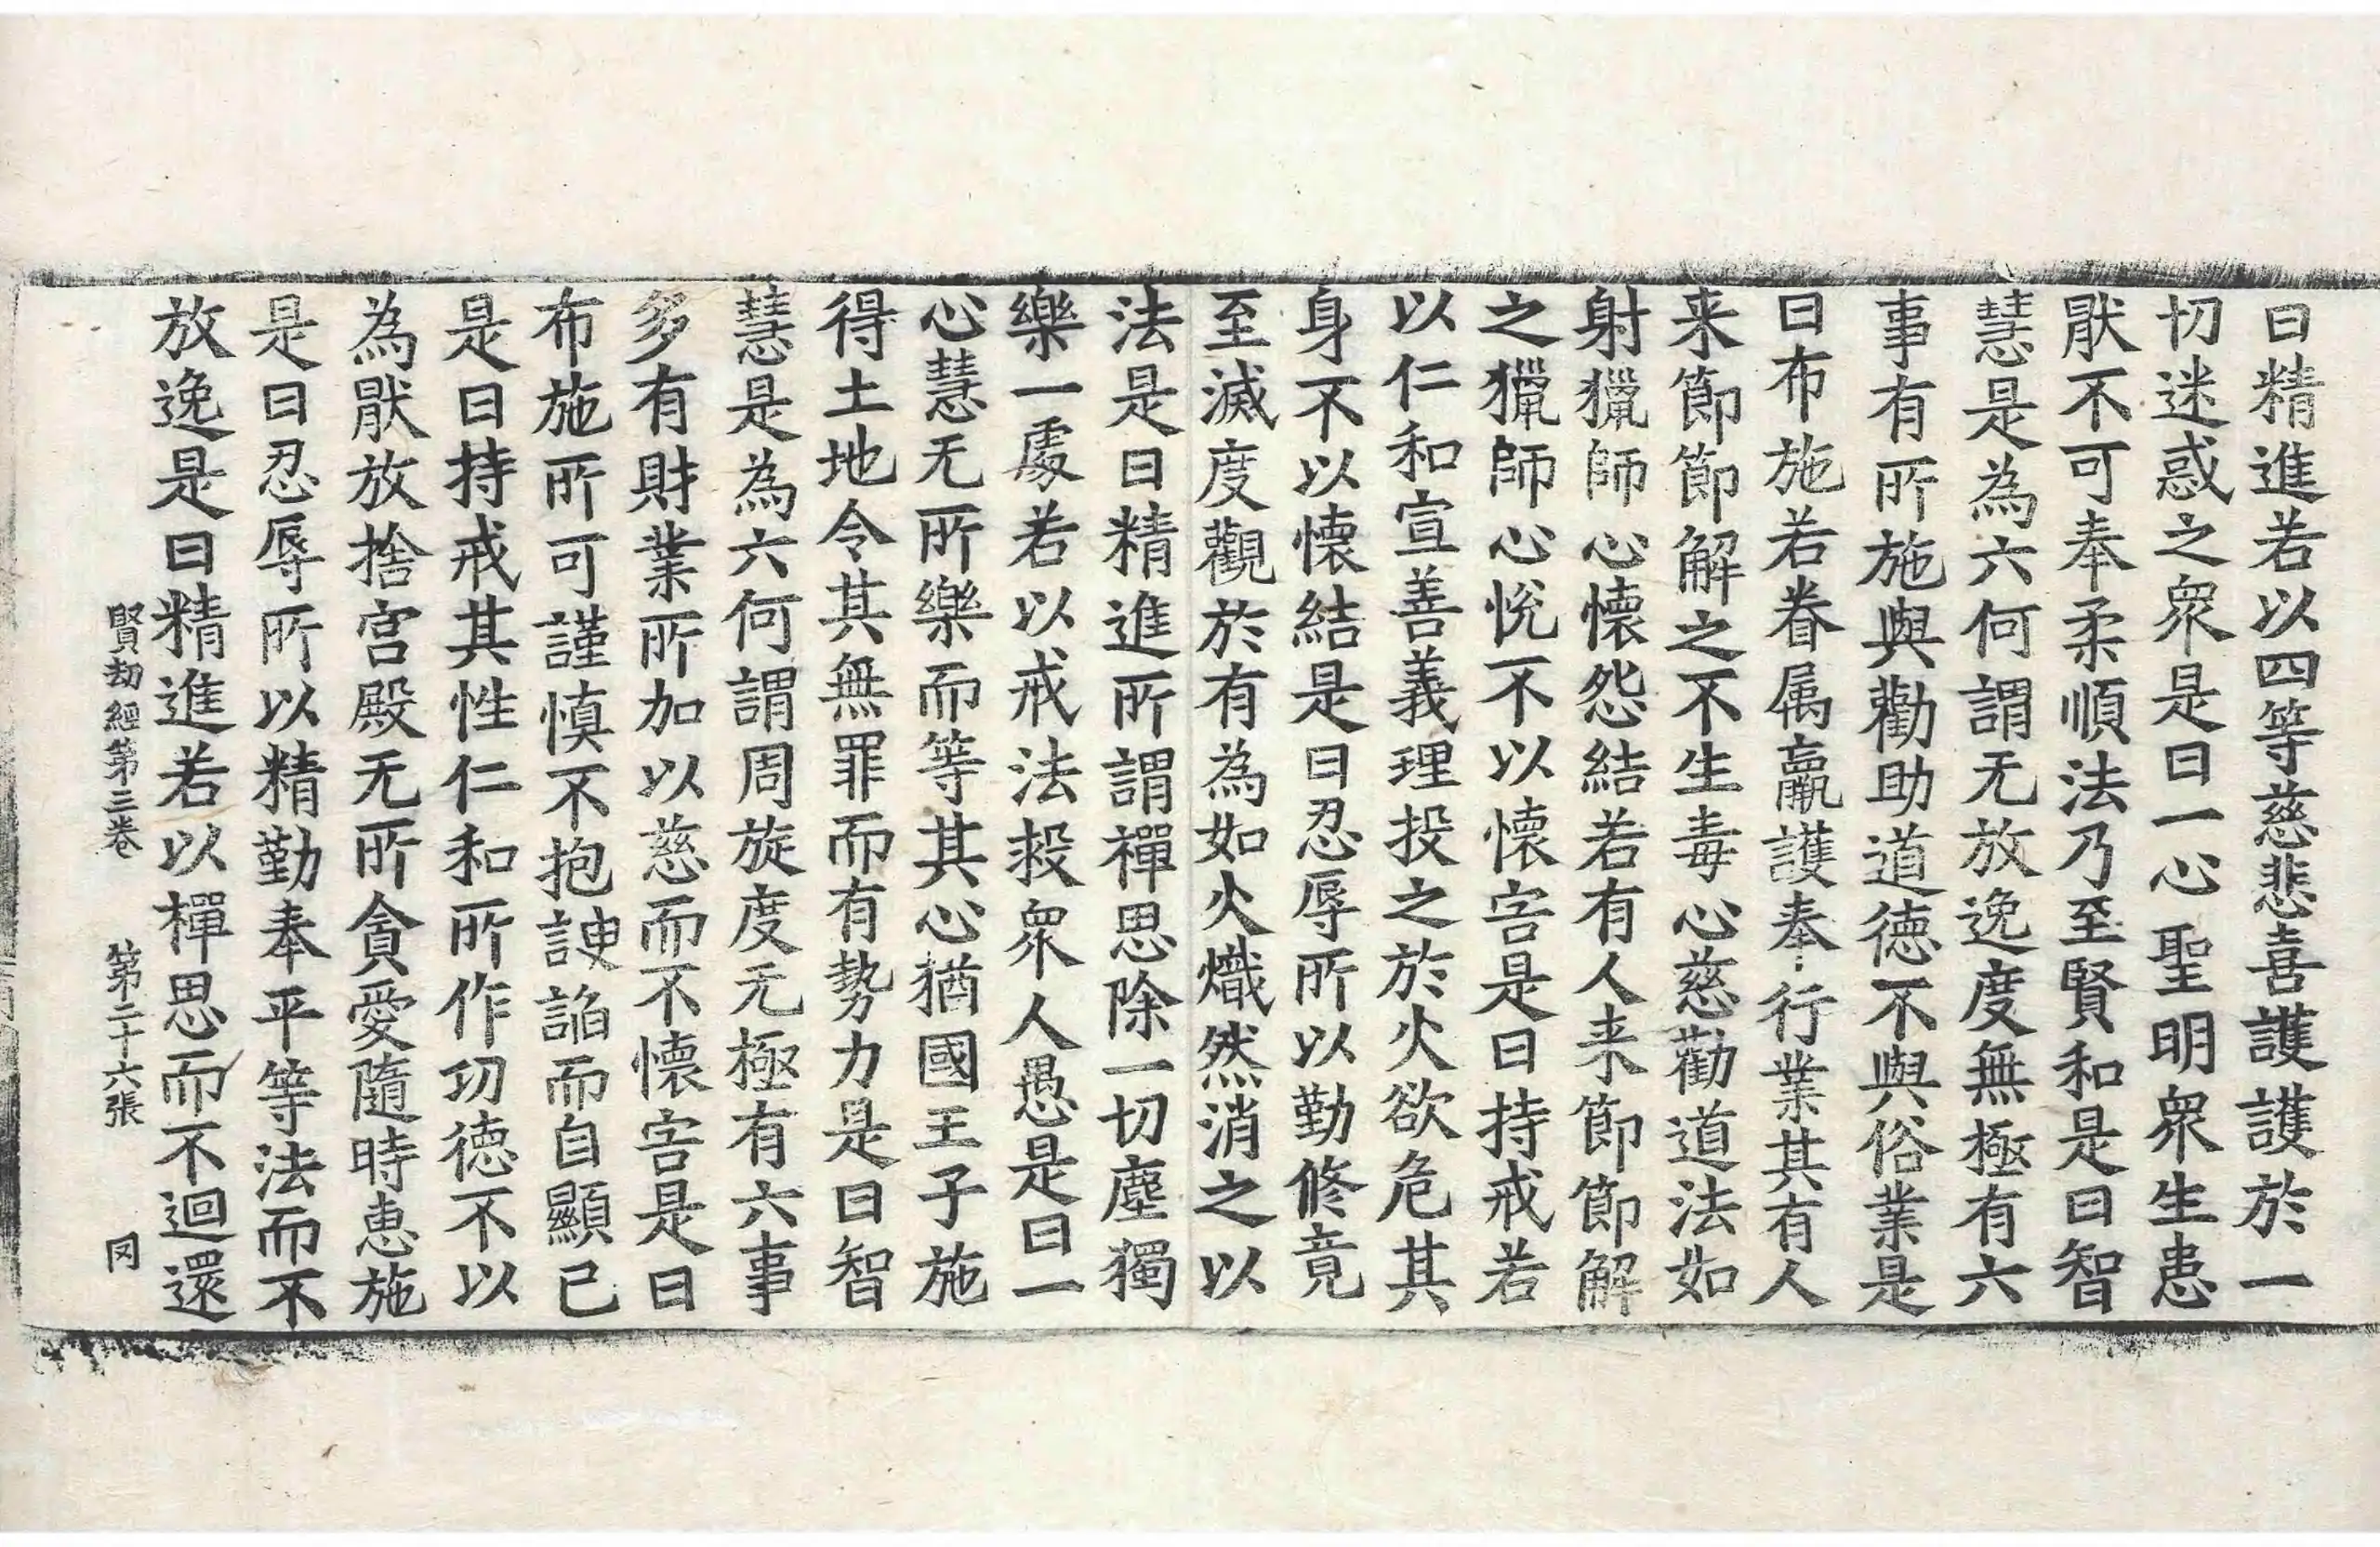 曰精進若以四等慈悲喜護護於一
切迷惑之衆是曰一心聖明衆生恚
猒不可奉柔順法乃至賢和是曰智
慧是為六何謂无放逸度無極有六
事有所施與勸助道德不與俗業是
曰布施若眷属羸護奉行業其有人
来節節解之不生毒心慈勸道法如
射獵師心懷怨結若有人来節節解
之獵師心悅不以懷害是曰持戒若
以仁和宣善義理投之於火欲危其
身不以懷結是曰忍辱所以勤修竟
至滅度觀於有為如火熾然消之以
法是曰精進所謂禪思除一切塵獨
樂一處若以戒法投衆人愚是曰一
心慧无所樂而等其心猶國王子施
得土地令其無罪而有勢力是曰智
慧是為六何謂周旋度无極有六事
多有財業所加以慈而不懷害是曰
布施所可謹慎不抱諛諂而自顯己
是曰持戒其性仁和所作功德不以
為猒放捨宮殿无所貪愛隨時恵施
是曰忍辱所以精勤奉平等法而不
放逸是曰精進若以禪思而不迴還
賢劫經第三卷 第二十六張 㓁